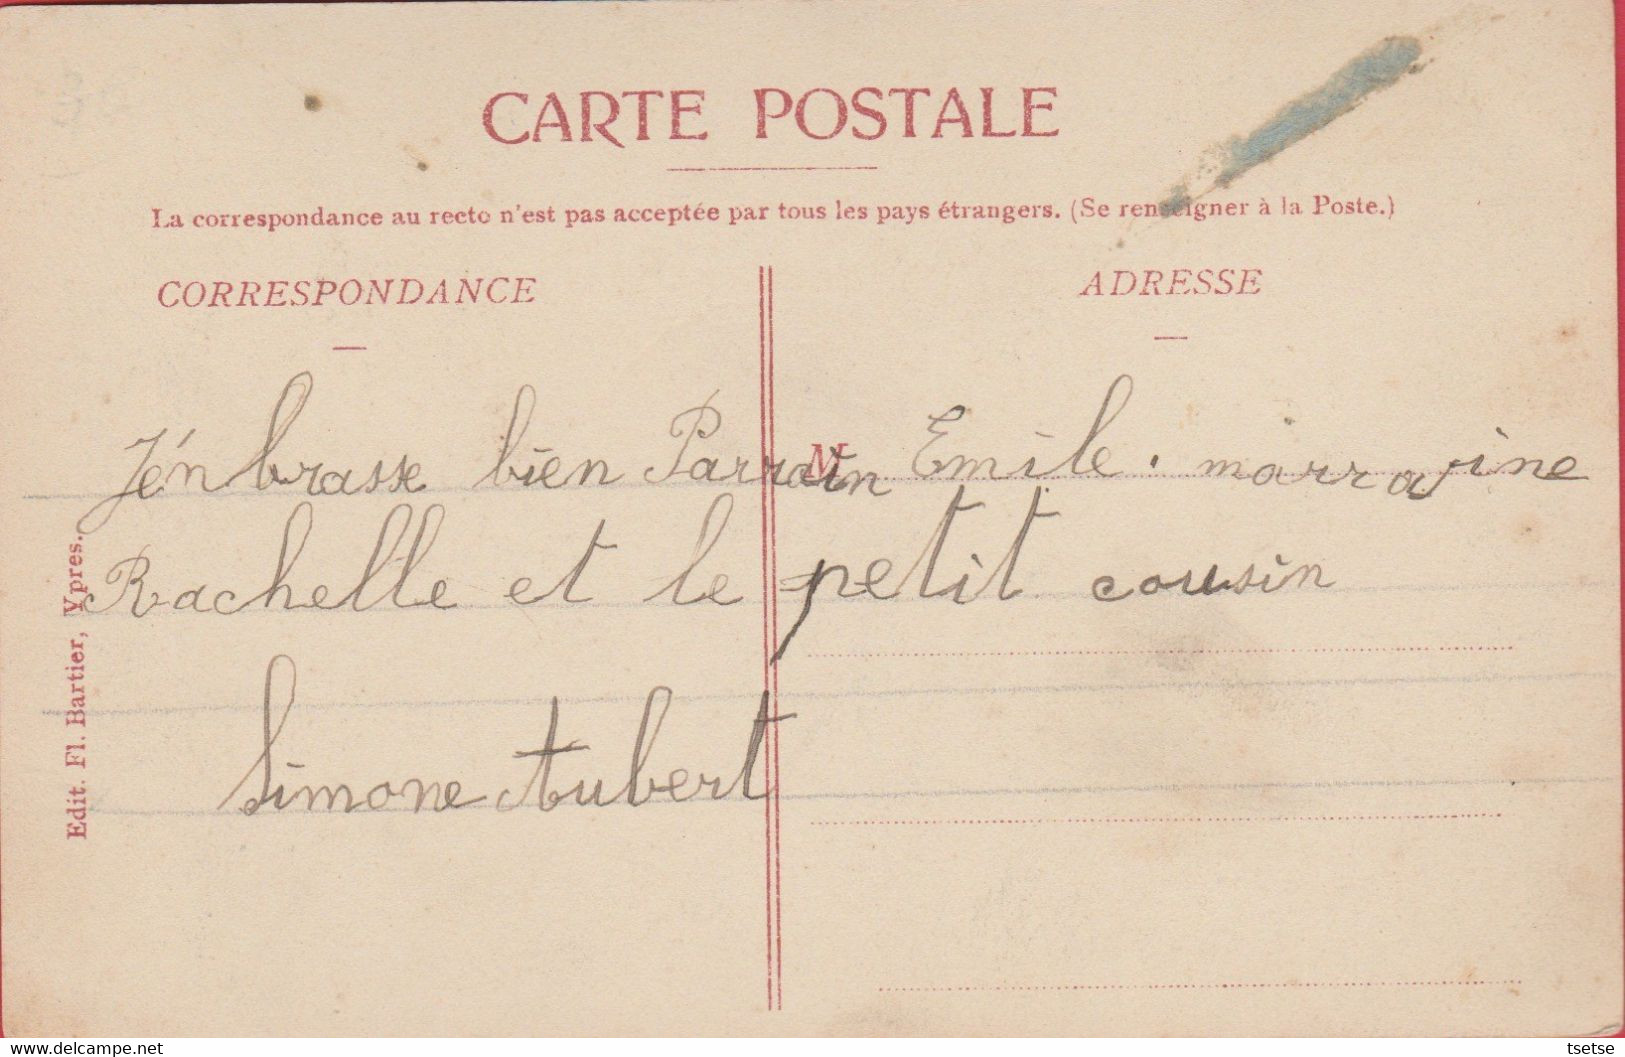 CARTE POSTALE
La correspondance au recto n'est pas acceptée par tous les pays étrangers. (Se renseigner à la Poste.)
CORRESPONDANCE
ADRESSE
M
J'énbrasse bien Parrain Emile. marraine
Rachelle et le petit cousin
Simone Aubert
Edit. Fl. Bartier, Ypres.
www.delcampe.net
tsetse